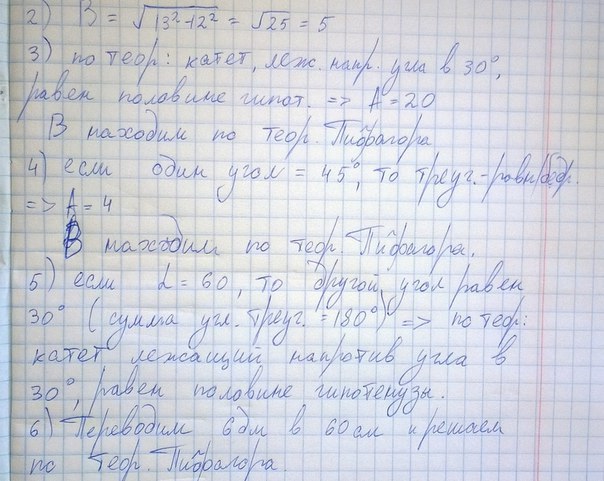 2) В = √13²-12² = √25 = 5
3) по теор: катет, леж. напр. угла в 30°,
равен половине гипот. => А = 20
В находим по теор. Пифрагора
4) если один угол = 45°, то треуг.-равнбедр.
=> А = 4
В находим по теор. Пифрагора.
5) если L = 60, то другой угол равен
30° (сумма угл. треуг. = 180°) => по теор:
катет лежащий напротив угла в
30°, равен половине гипотенузы.
6) Переводим 6дм в 60см и решаем
по теор. Пифрагора.